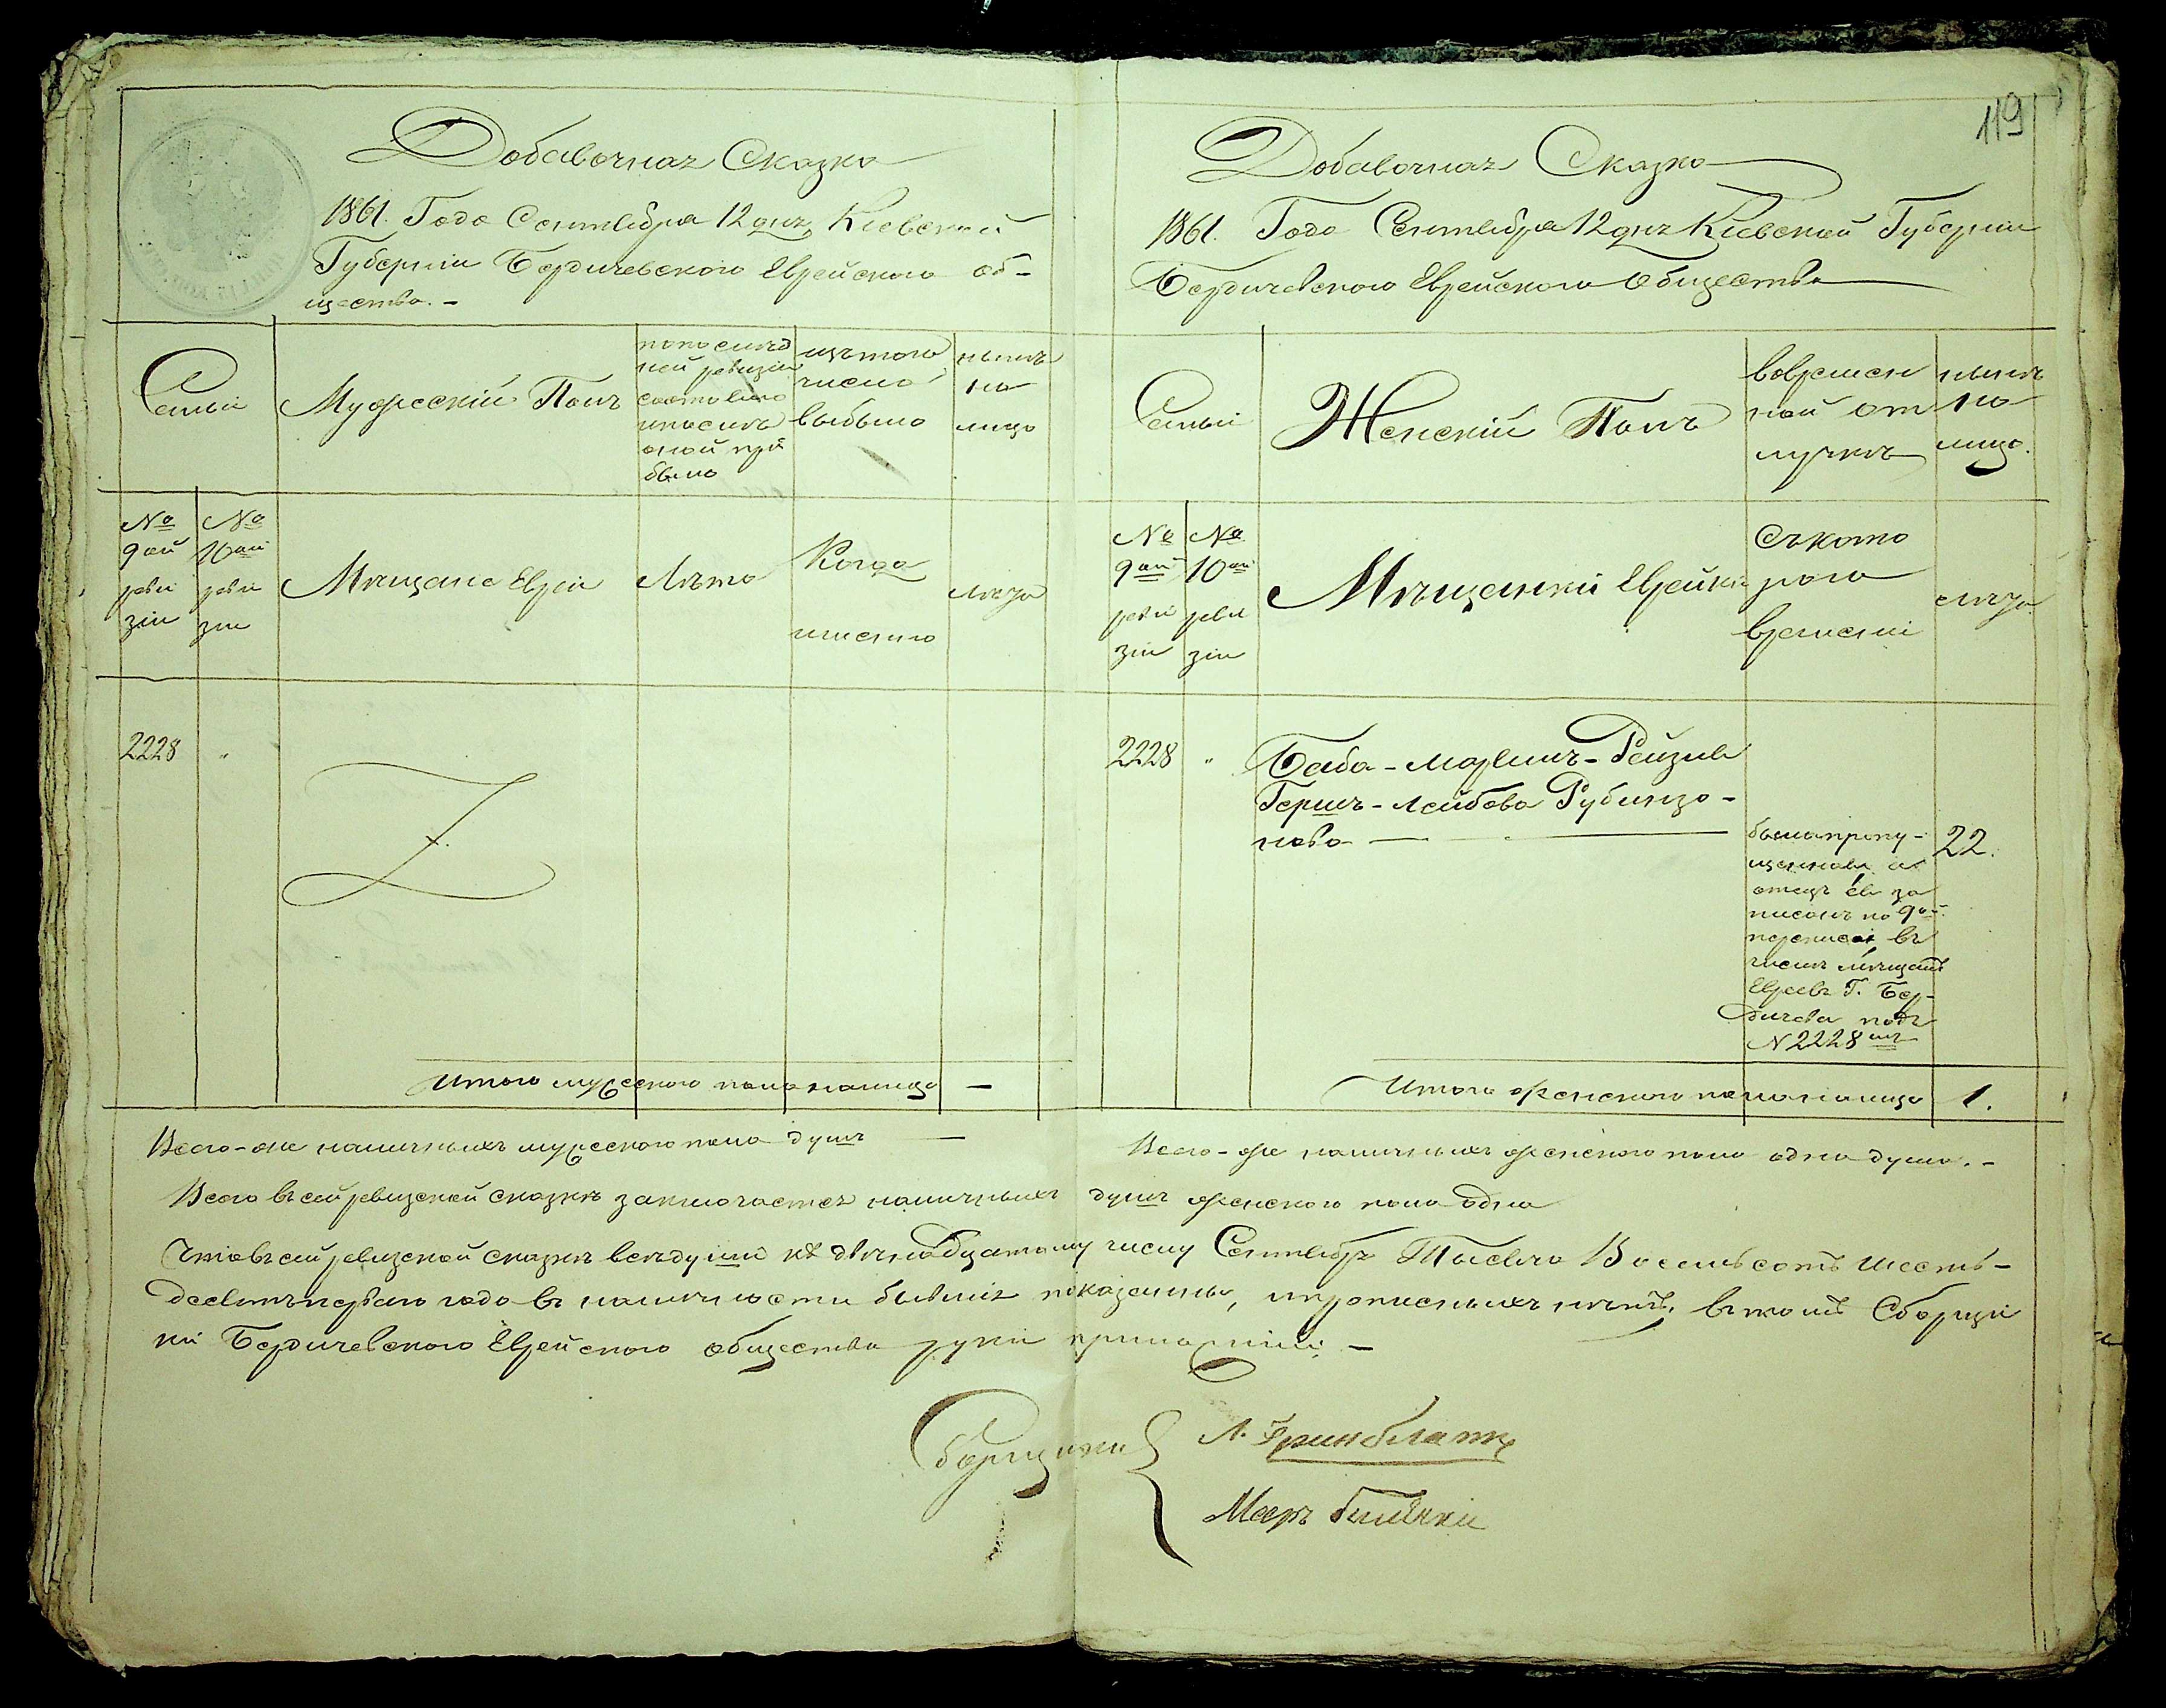 119
Добавочная Сказка
1861. Года Сентября 12 дня, Кіевской
Губерніи Бердичевского Еврейского об-
щества. -
Семьи
Мужескій Полъ
по послѣд
ней ревизіи
состояло
и послѣ
оной при
было
изъ того
числа
выбыло
нынѣ
на
лицо
№
9ой
реви
зіи
№
10ой
реви
зіи
Мѣщане Евреи
Лѣта
Когда
именно
лѣта
2228 "
Итого мужеского пола налицо —
Всего-же наличныхъ мужеского пола душъ —
Добавочная Сказка
1861. Года Сентября 12 дня Кіевской Губерніи
Бердичевского Еврейского Общества
Семьи
Женскій Полъ
во времен
ной от
лучкѣ
нынѣ
на
лицо.
№
9ой
реви
зіи
№
10ой
реви
зіи
Мѣщанки Еврейки
Съ кото
рого
времени
лѣта
2228 " Баба-Марьимъ-Рейзя
Гершъ-Лейбова Рубинзо-
нова
была пропу-
щенная а
отецъ ея за
писанъ по 9ой
переписи въ
числѣ мѣщанъ
Евреевъ Г. Бер-
дичева подъ
N 2228мъ
22.
Итого женского пола налицо 1.
Всего-же наличныхъ женского пола одна душа. -
Всего въ сей ревизской сказкѣ заключается наличныхъ душъ женского пола одна
Что въ сей ревизской сказкѣ всѣ души къ двѣнадцатому числу Сентября Тысяча Восемьсотъ шесть-
десятъ первого года въ наличности бывшія показанны, и прописныхъ нѣтъ, въ томъ Сборщи
ки Бердичевского Еврейского общества руки приложили. -
Сборщики
Л. Гринблатъ
Мееръ